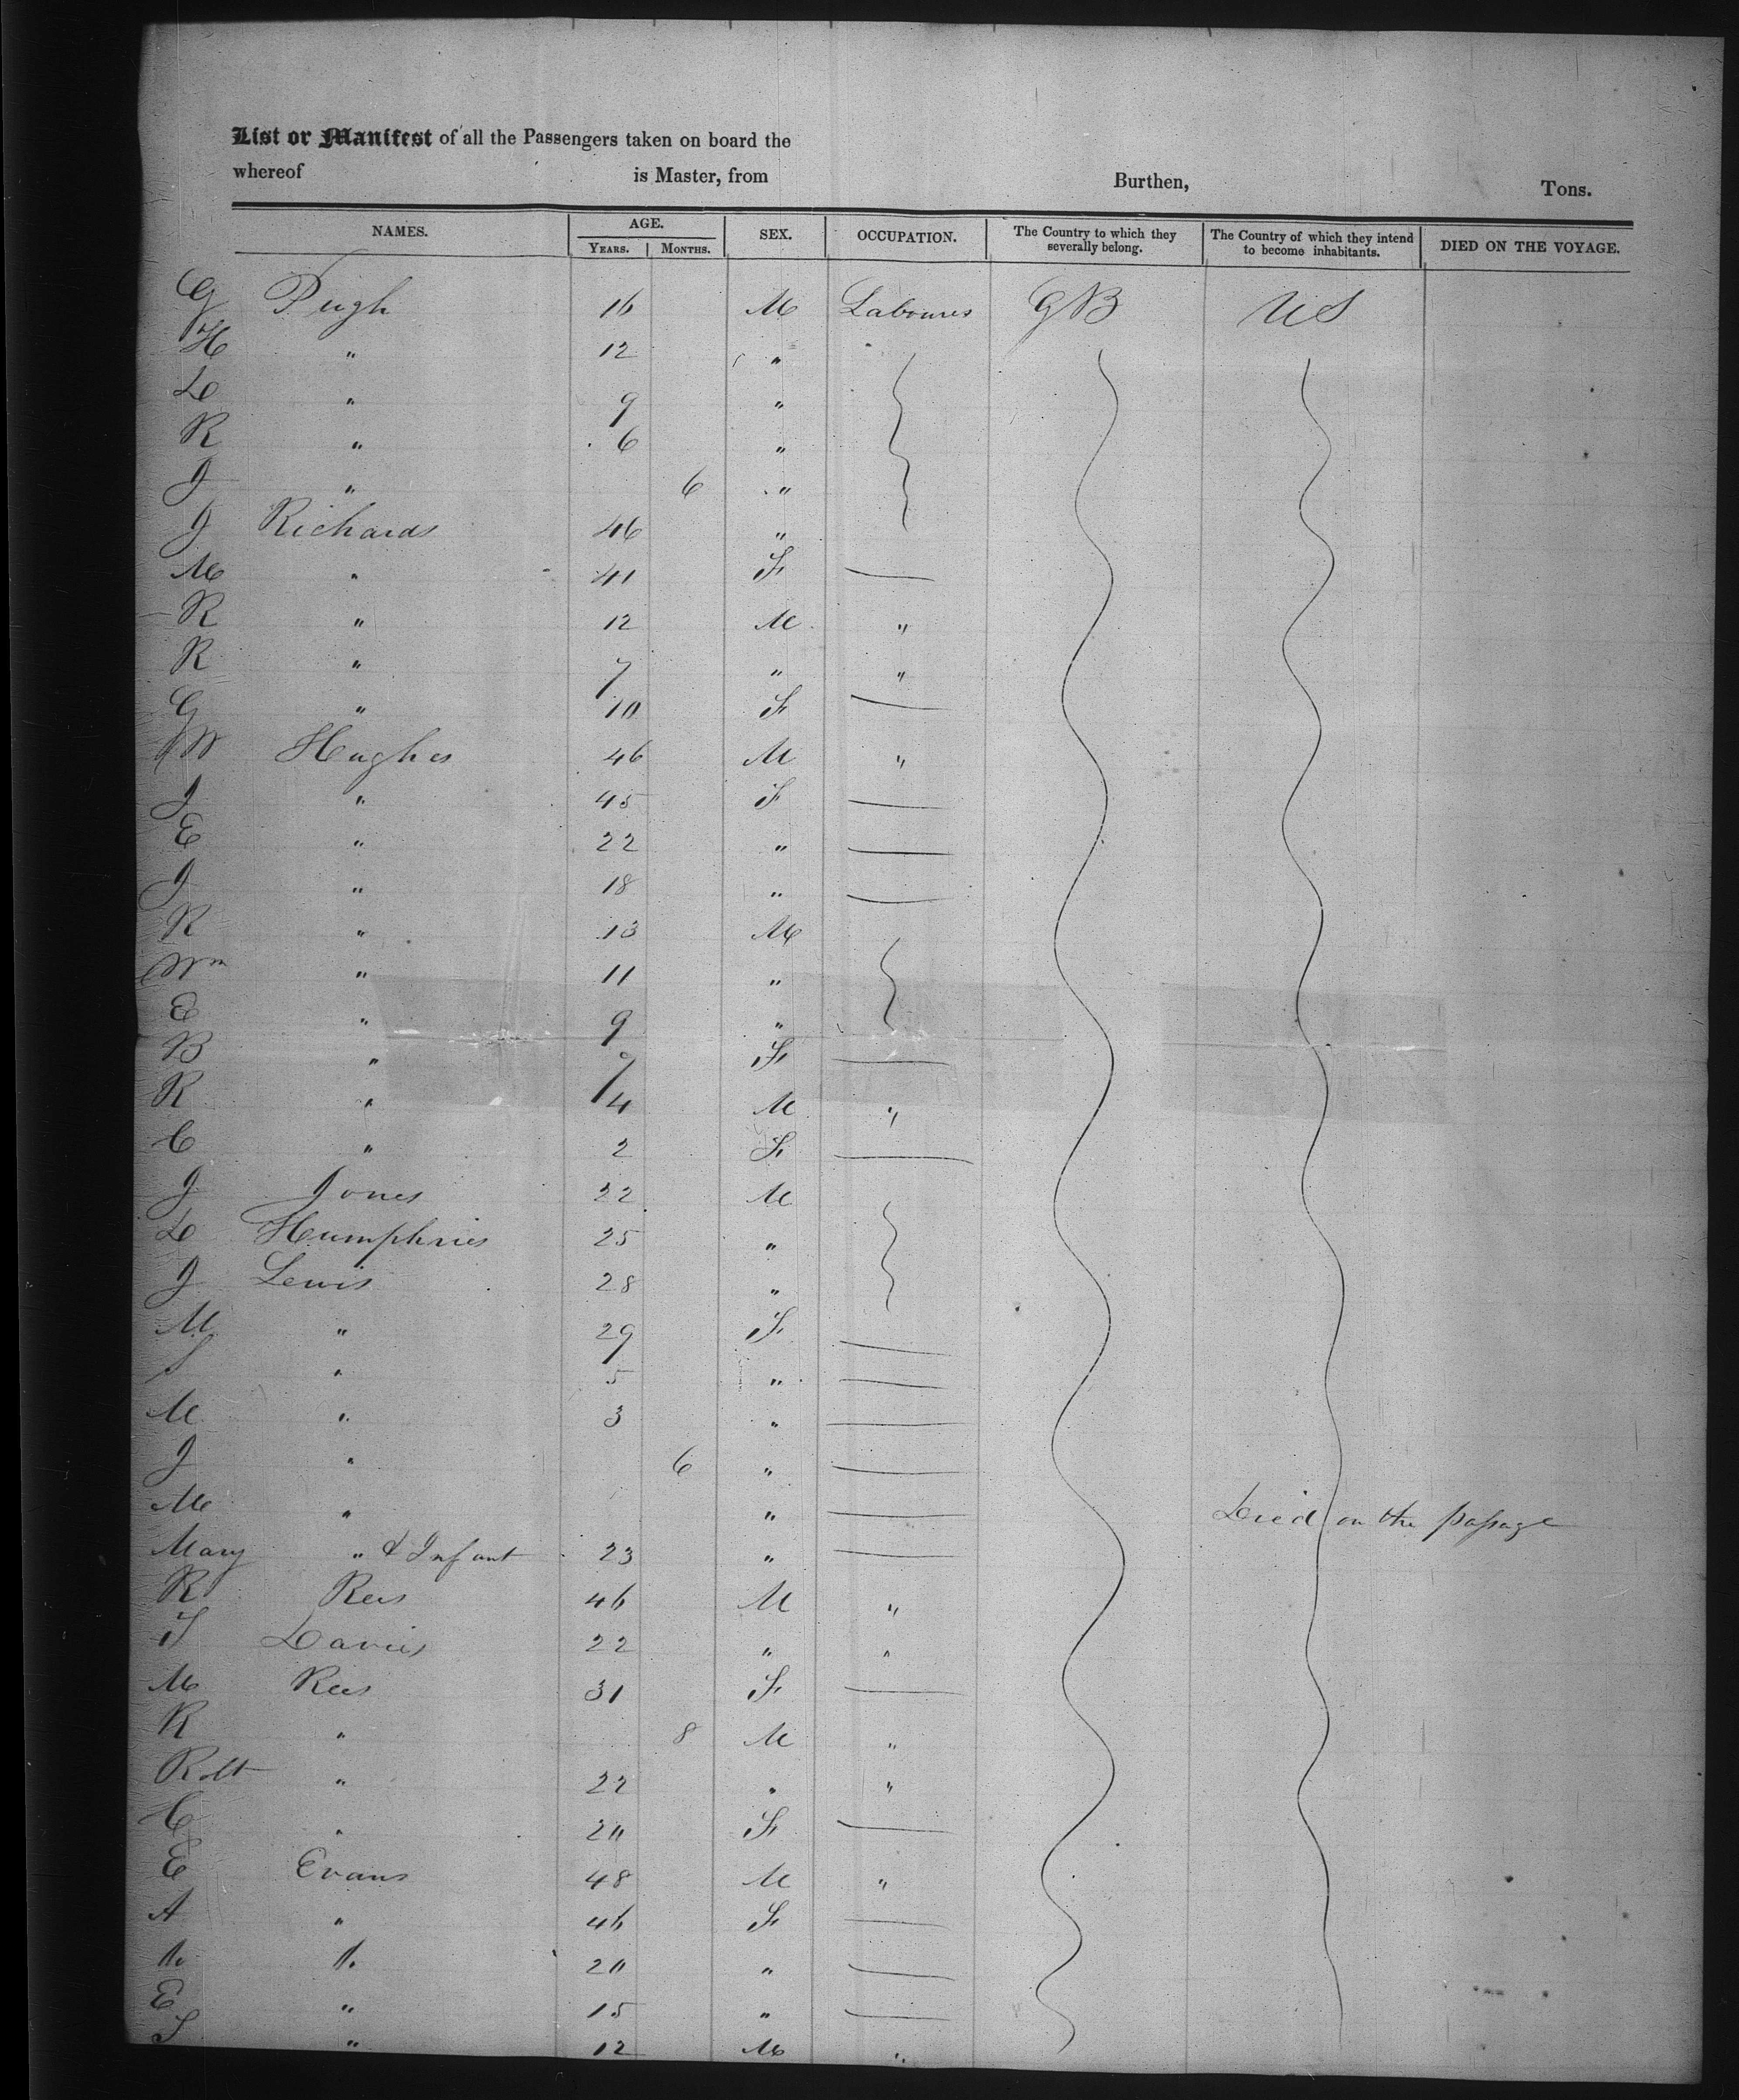 List or Manifest of all the Passengers taken on board the
whereof is Master, from Burthen, Tons.
NAMES. AGE. YEARS. MONTHS. SEX. OCCUPATION. The Country to which they severally belong. The Country of which they intend to become inhabitants. DIED ON THE VOYAGE.
G Pugh 16 M Labourers GB US
H " 12 "
D " 9 "
R " 6 "
J " 6 "
J Richards 46 "
M " 41 F —
R " 12 M "
R " 7 " "
G " 10 F —
W Hughes 46 M "
J " 45 F —
E " 22 " —
J " 18 " —
R " 13 M
Wm " 11 "
E " 9 "
B " 7 F —
R " 4 M "
C " 2 F —
J Jones 22 M
D Humphries 25 "
J Lewis 28 "
M " 29 F —
S " 5 " —
M " 3 " —
J " 6 " —
M " " — Died on the passage
Mary " & Infant 23 " —
R Rees 46 M "
T Davies 22 " "
M Rees 31 F —
R " 8 M "
Robt " 22 " "
C " 20 F —
E Evans 48 M "
A " 46 F —
" 20 " —
E " 15 " —
S " 12 M "